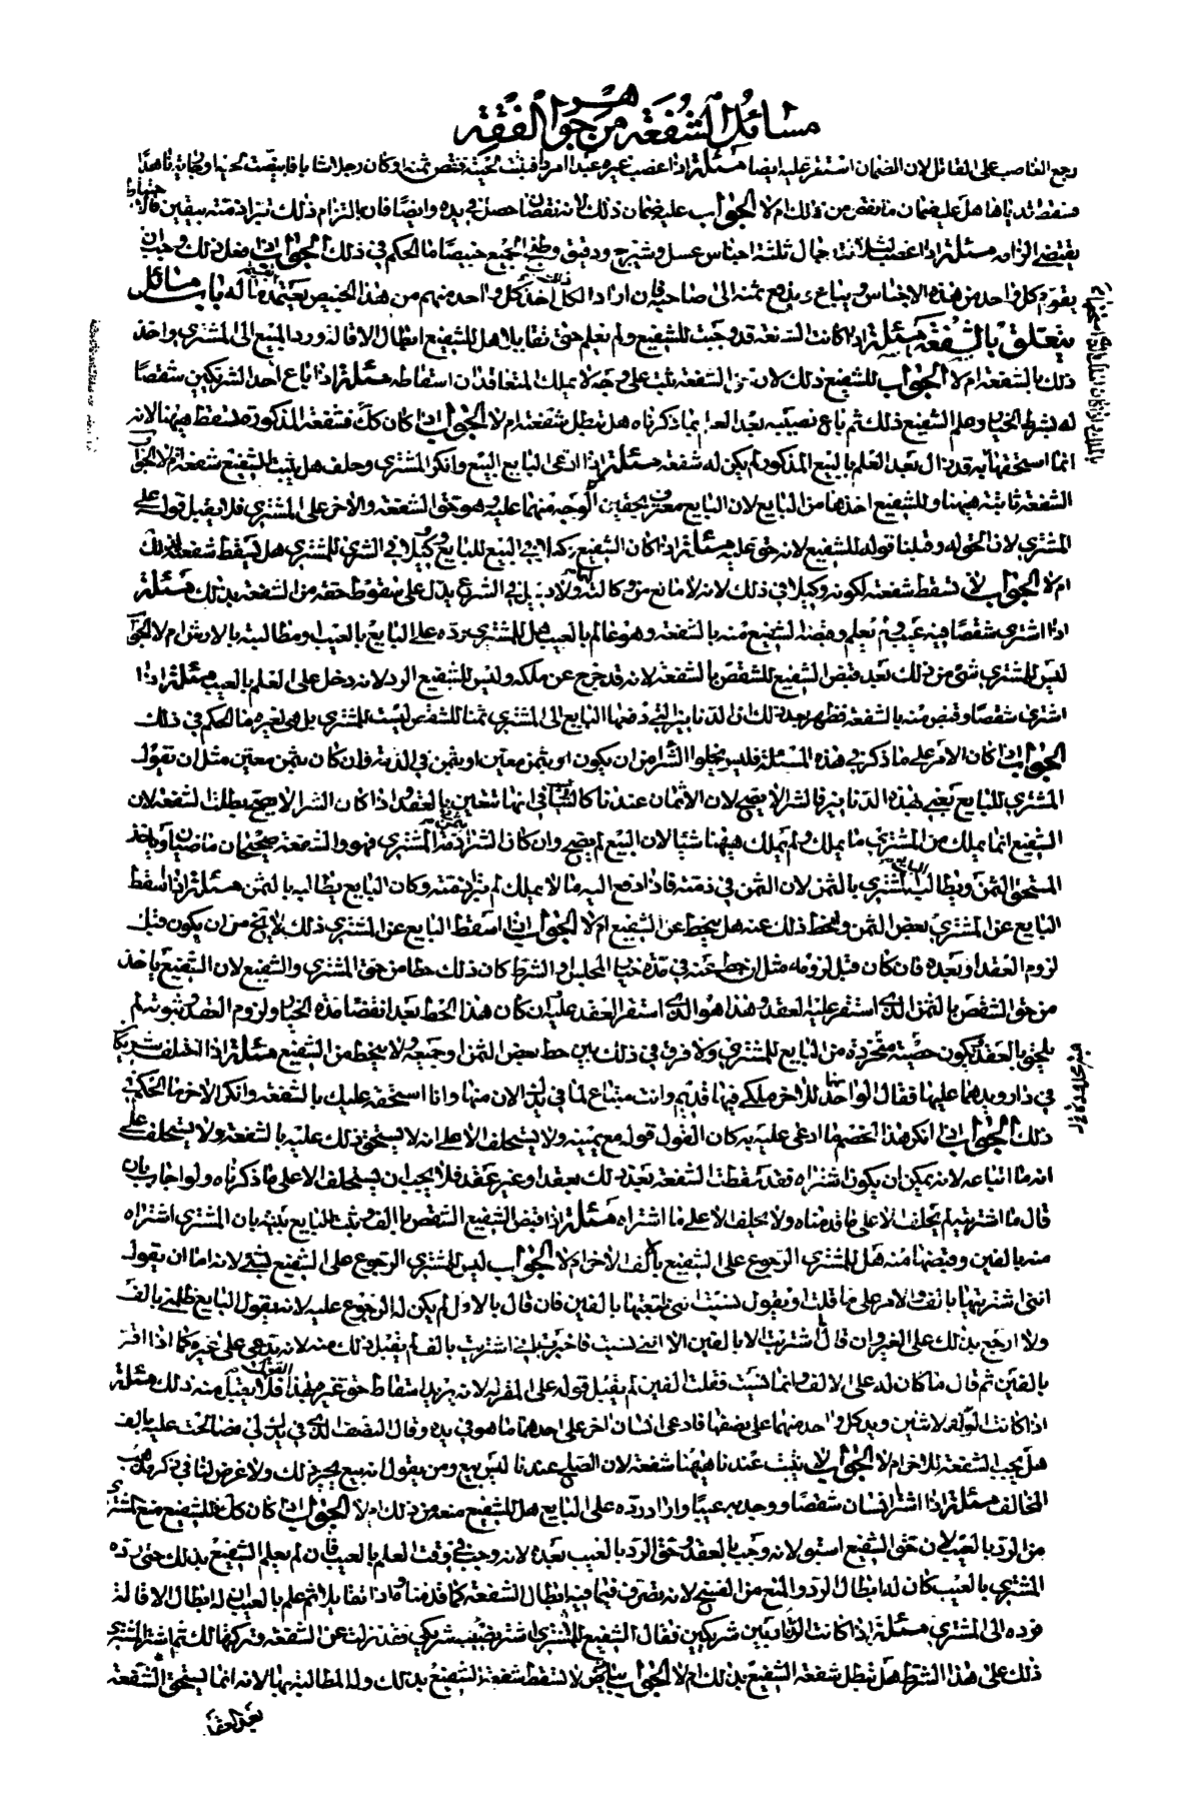 مسائل الشفعة من جواهر الفقه
رجع الغاصب على القاتل لان الضمان استقر عليه ايضا مسئلة اذا غصب غيره عبدا امرد فنبتت لحيته فنقص ثمنه او كان رجلا شابا فابيضت لحيته او جارية ناهدا
فسقط ثدياها هل عليه ضمان ما نقص من ذلك ام لا الجواب عليه ضمان ذلك لانه نقصان حصل في يده وايضا فان بالتزام ذلك تبرا ذمته بيقين فالاحتياط
يقتضي الزامه مسئلة اذا غصب لثلثة اجناس عسل وشيرج ودقيق وطبخ الجميع خبيصا ما الحكم في ذلك الجواب اذا فعل ذلك وجب ان
يقوم كل واحد من هذه الاجناس ويباع ويدفع ثمنه الى صاحبه فان اراد الكل اخذ كل واحد منهم من هذا الخبيص بقيمة ماله باب مسائل
يتعلق بالشفعة مسئلة اذا كانت الشفعة قد وجبت للشفيع ولم يعلم حتى تقايلا هل للشفيع ابطال الاقالة ورد المبيع الى المشتري واخذ
ذلك بالشفعة ام لا الجواب للشفيع ذلك لان حق الشفعة ثبت على وجه لا يملك المتعاقدان اسقاطه مسئلة اذا باع احد الشريكين شقصا
له بشرط الخيار وعلم الشفيع ذلك ثم باع نصيبه بعد العلم بما ذكرناه هل تبطل شفعته ام لا الجواب اذا كان كك فشفعته المذكورة تسقط هيهنا لانه
انما استحقها به قد زال بعد العلم بالبيع المذكور لم يكن له شفعة مسئلة اذا ادعى البايع البيع وانكر المشتري وحلف هل يثبت للشفيع شفعة ام لا الجواب
الشفعة ثابتة هيهنا وللشفيع اخذها من البايع لان البايع معترف بحقين الوجه منهما عليه وهو حق الشفعة والاخر على المشتري فلا يقبل قوله على
المشتري لان الحق له وقبلنا قوله للشفيع لانه حق عليه مسئلة اذا كان الشفيع وكيلا في البيع للبايع او وكيلا في الشري للمشتري هل يسقط شفعته لذلك
ام لا الجواب لا تسقط شفعته لكونه وكيلا في ذلك لانه لا مانع من وكالته لهما ولا دليل في الشرع يدل على سقوط حقه من الشفعة بذلك مسئلة
اذا اشترى شقصا فيه عيب ولم يعلم وقبضه الشفيع منه بالشفعة وهو عالم بالعيب هل للمشتري رده على البايع بالعيب او مطالبته بالارش ام لا الجواب
ليس للمشتري شئ من ذلك بعد قبض الشفيع للشقص بالشفعة لانه قد خرج عن ملكه وليس للشفيع الرد لانه دخل على العلم بالعيب مسئلة اذا
اشترى شقصا وقبض منه بالشفعة فظهر بعد ذلك ان الدنانير التي دفعها البايع الى المشتري ثمنا للشقص ليست للمشتري بل هي لغيره ما الحكم في ذلك
الجواب اذا كان الامر على ما ذكر في هذه المسئلة فليس يخلوا الشرا من ان يكون او بثمن معين او بثمن في الذمة فان كان بثمن معين مثل ان يقول
المشتري للبايع بعني بهذه الدنانير فالشرا لا يصح لان الاثمان عندنا كالثياب في انها تتعين بالعقد واذا كان الشرا لا يصح بطلت الشفعة لان
الشفيع انما يملك من المشتري ما يملك ولم يملك هيهنا شيئا لان البيع لم يصح وان كان الشرا بثمن في ذمة المشتري فهو والشفعة صحيحان ماضيان وياخذ
المستحق الثمن ويطالب البايع المشتري بالثمن لان الثمن في ذمته فاذا دفع اليه ما لا يملك لم تبرا ذمته وكان البايع يطالبه بالثمن مسئلة اذا اسقط
البايع عن المشتري بعض الثمن وحط ذلك عنه هل ينحط عن الشفيع ام لا الجواب اذا اسقط البايع عن المشتري ذلك لا يخ من ان يكون قبل
لزوم العقد او بعده فان كان قبل لزومه مثل ان حط عنه في مدة خيار المجلس او الشرط كان ذلك حطا من حق المشتري والشفيع لان الشفيع ياخذ
من حق الشقص بالثمن الذي استقر عليه العقد وهذا هو الذي استقر العقد عليه وان كان هذا الحط بعد انقضا مدة الخيار ولزوم العقد وثبوته لم
يلحق بالعقد ويكون هبة مجردة من البايع للمشتري ولا فرق في ذلك بين حط بعض الثمن او جميعه ولا ينحط من الشفيع مسئلة اذا اختلف شريكان
في دار ويدهما عليها فقال الواحد منهما للاخر ملكي فيها قديم وانت مبتاع لما في يدك الان منها وانا استحقه عليك بالشفعة وانكر الاخر ما الحكم في
ذلك الجواب اذا انكر هذا الخصم ما ادعى عليه به كان القول قوله مع يمينه ولا يستحلف الا على انه لا يستحق ذلك عليه بالشفعة ولا يستحلف على
انه ما ابتاعه لانه يمكن ان يكون اشتراه فقد سقطت الشفعة بعد ذلك بعقد او غير عقد فلا يجب ان يستحلف الا على ما ذكرناه ولو اجاب بان
قال ما اشتريته لم يحلف الا على ما قدمناه ولا يحلف الا على ما اشتراه مسئلة اذا قبض الشفيع الشقص بالف وثبت للبايع بينة بان المشتري اشتراه
منه بالفين وقبضها منه هل للمشتري الرجوع على الشفيع بالف الاخر ام لا الجواب ليس للمشتري الرجوع على الشفيع بشئ لانه اما ان يقول
انني اشتريتها بالف والامر على ما قلت او يقول نسيت انني ابتعتها بالفين فان قال بالاول لم يكن له الرجوع عليه لانه يقول البايع ظلمني بالف
ولا ارجع بذلك على الغير وان قال اشتريت بالفين الا انني نسيت فاخبرت بانني اشتريت بالف لم يقبل ذلك منه لانه يدعي على غيره كما اذا اقر
بالفين ثم قال ما كان له على الا الف وانما نسيت فقلت الفين لم يقبل قوله على المقر له لانه يريد اسقاط حق غيره بهذا القول فلا يقبل منه ذلك مسئلة
اذا كانت الدار لاثنين ويد كل واحد منهما على نصفها فادعى انسان اخر على احدهما ما هو في يده وقال النصف الذي في يدك لي فصالحت عليه بالف
هل يجب الشفعة للاخر ام لا الجواب لا يثبت عندنا هيهنا شفعة لان الصلح عندنا ليس ببيع ومن يقول انه بيع يجيز ذلك ولا غرض لنا في ذكر مذهب
المخالف مسئلة اذا اشترى انسان شقصا ووجد به عيبا واراد رده على البايع هل للشفيع منعه من ذلك ام لا الجواب اذا كان كك فللشفيع منع المشتري
من الرد بالعيب لان حق الشفيع اسبق لانه وجب بالعقد وحق الرد بالعيب بعده لانه وجب في وقت العلم بالعيب فان لم يعلم الشفيع بذلك حتى رده
المشتري بالعيب كان له ابطال الرد والمنع من الفسخ لانه تصرف فيما فيه ابطال الشفعة كما قدمناه اذا تقايلا ثم علم بالعيب ان له ابطال الاقالة
ورده الى المشتري مسئلة اذا كانت الدار بين شريكين فقال الشفيع للمشتري اشتر نصيب شريكي فقد نزلت عن الشفعة وتركتها لك ثم اشترا المشتري
ذلك على هذا الشرط هل تبطل شفعة الشفيع بذلك ام لا الجواب لا تسقط شفعة الشفيع بذلك وله المطالبة بها لانه انما يستحق الشفعة
بعد العقد